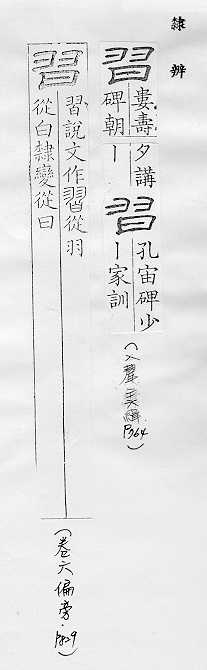 隸辨
習婁壽碑朝夕講丨
習孔宙碑少丨家訓
(入聲 P364)
習
習說文作習從羽
從白隸變從日
(卷六偏旁.P829)